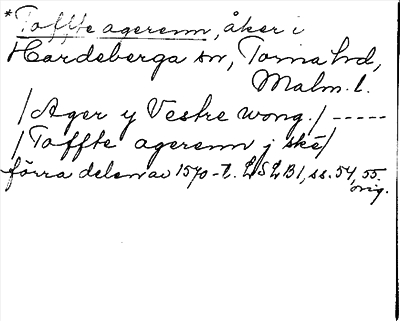 *Toffte agerenn, åker i
Hardeberga sn, Torna hd,
Malm. l.
/Ager y Vestre wong./ -----
/Toffte agerenn j ske/
förra delen av 1570-t. LSLB1, ss. 54, 55.
orig.